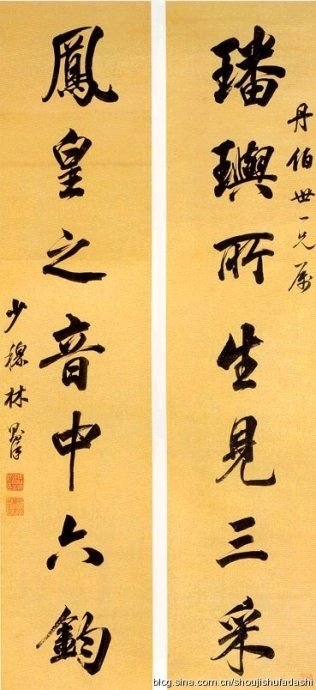 丹伯世一兄屬
璠璵所生見三采
鳳皇之音中六鈞
少穆林則徐
blog.sina.com.cn/shoujishufadashi